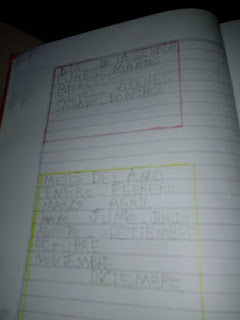 DIAS DE LA SEMANA
LUNES MARTES
MIERCOLES
VIERNES
SABADO DOMINGO
MESES DEL AÑO
ENERO FEBRERO
MARZO ABRIL
MAYO JUNIO JULIO
AGOSTO SEPTIEMBRE
OCTUBRE
NOVIEMBRE
DICIEMBRE